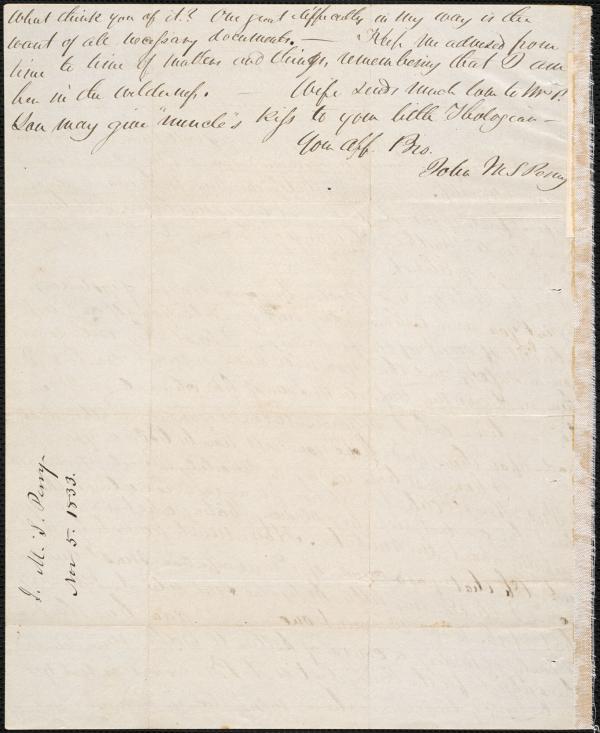 What think you of it? One great difficulty in my way is the
want of all necessary documents. — Keep me advised from
time to time of matters and things, remembering that I am
here in the wilderness. — Wife sends much love to Mrs P.
You may give "uncle"s kiss to your little Theologian —
Your aff. Bro.
John M S Perry
J. M. S. Perry
Nov 5. 1833.